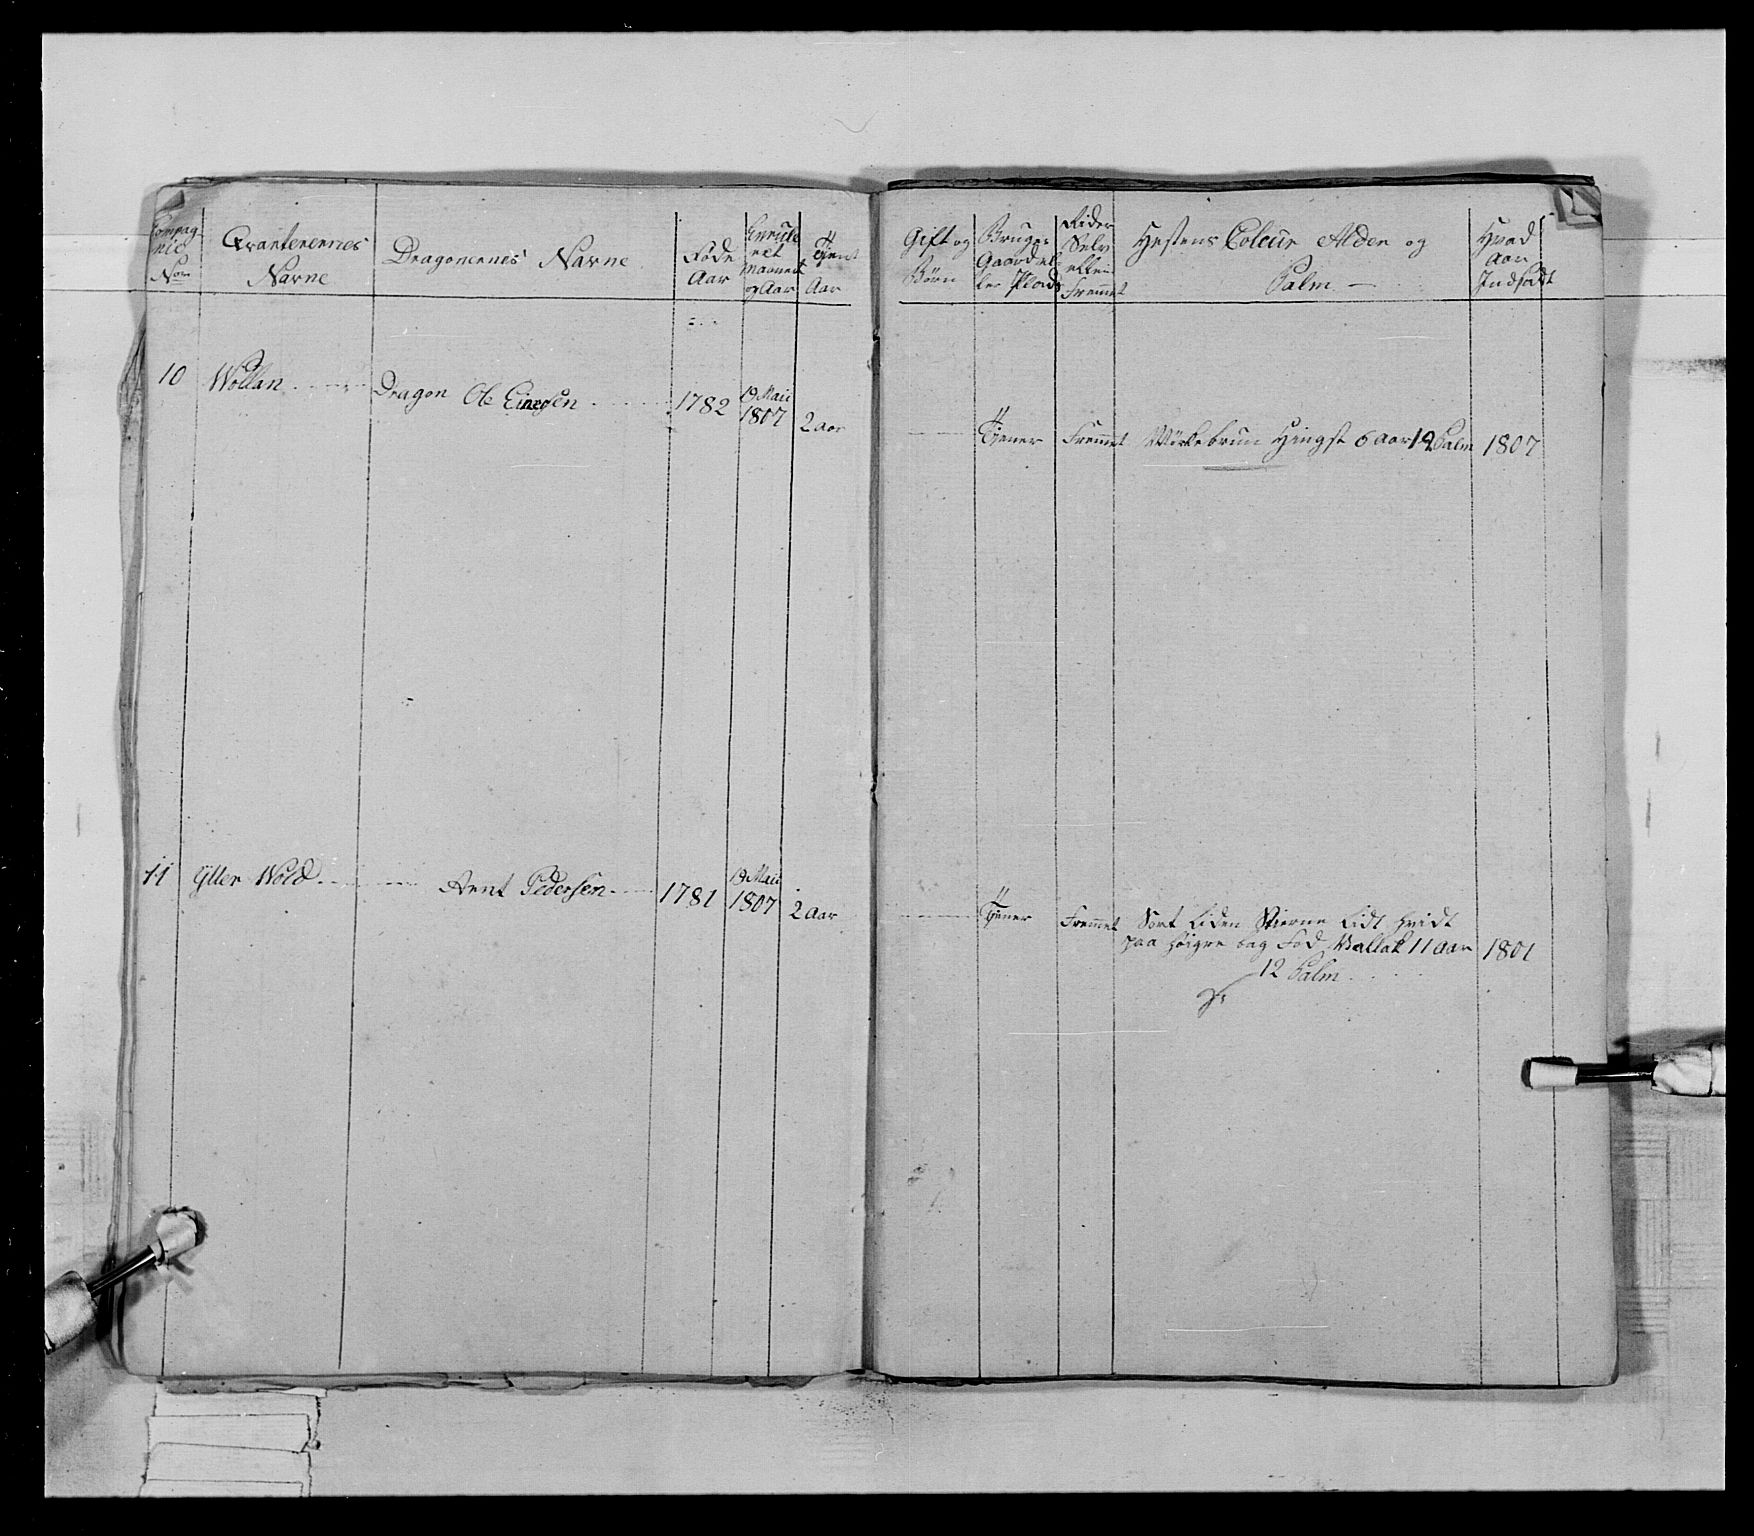 Compag
nie
No
Qvarterernes
Navne
Dragonernes Navne
Føde
Aar
Enrule
ret
Maanet
og Aar
Tjent
Aar
Gift og
Børn
Bruger
Gaard el
ler Plads
Rider
Selv
eller
Fremet
Hestens Coleur Alder og
Palm
Hvad
Aar
Indsadt
10 Wollan Dragon Ole Einersen 1782 19 Maii
1807 2 Aar
Tjener Fremet Mörkebrun Hingst 6 Aar 12 Palm 1807
11 Ytter Wold Arnt Pedersen 1781 19 Maii
1807 2 Aar
Tjener Fremet Sort liden Stierne lidt hvidt
paa höigre bag Fod Vallak 11 Aar 1801
12 Palm